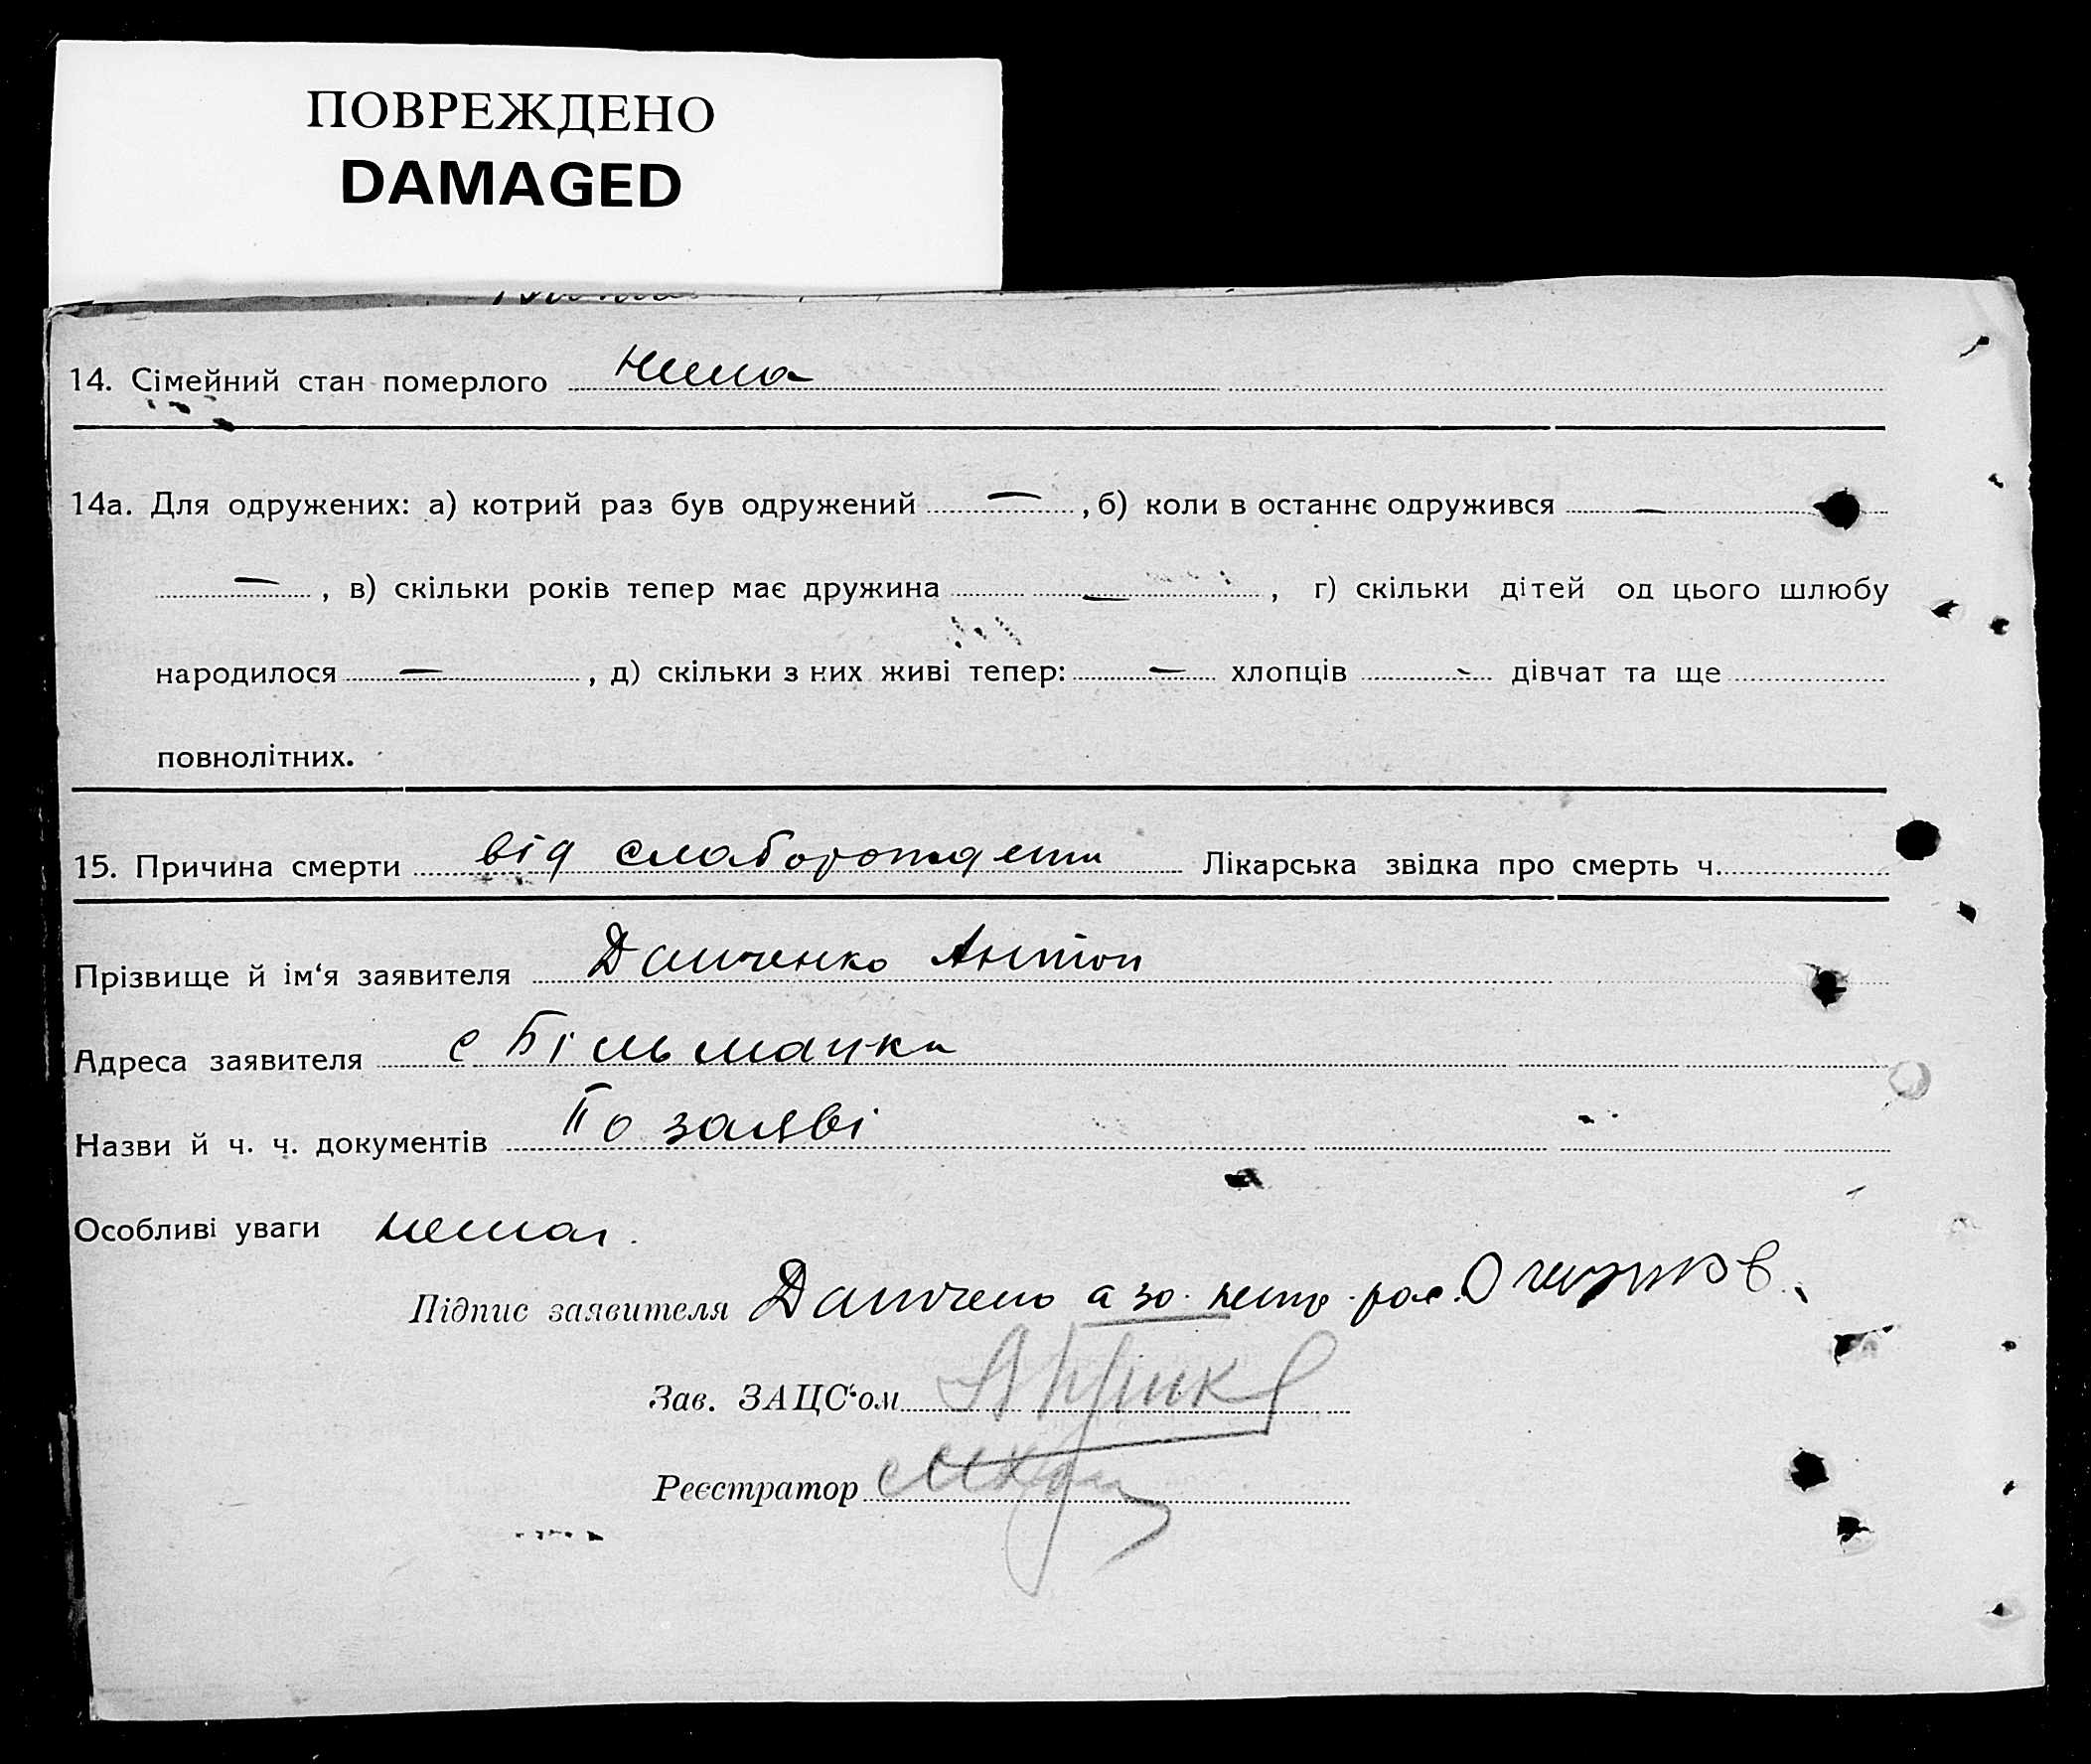 ПОВРЕЖДЕНО
DAMAGED
14. Сімейний стан померлого нема
14а. Для одружених: а) котрий раз був одружений — , б) коли в останнє одружився —
— , в) скільки років тепер має дружина — , г) скільки дітей од цього шлюбу
народилося — , д) скільки з них живі тепер: — хлопців - дівчат та ще
повнолітних.
15. Причина смерти від Лікарська звідка про смерть ч.
Прізвище й ім‘я заявителя Данченко Антон
Адреса заявителя с Більманка
Назви й ч. ч. документів По заяві
Особливі уваги немає.
Підпис заявителя а за
Зав. ЗАЦС‘ом
Реєстратор